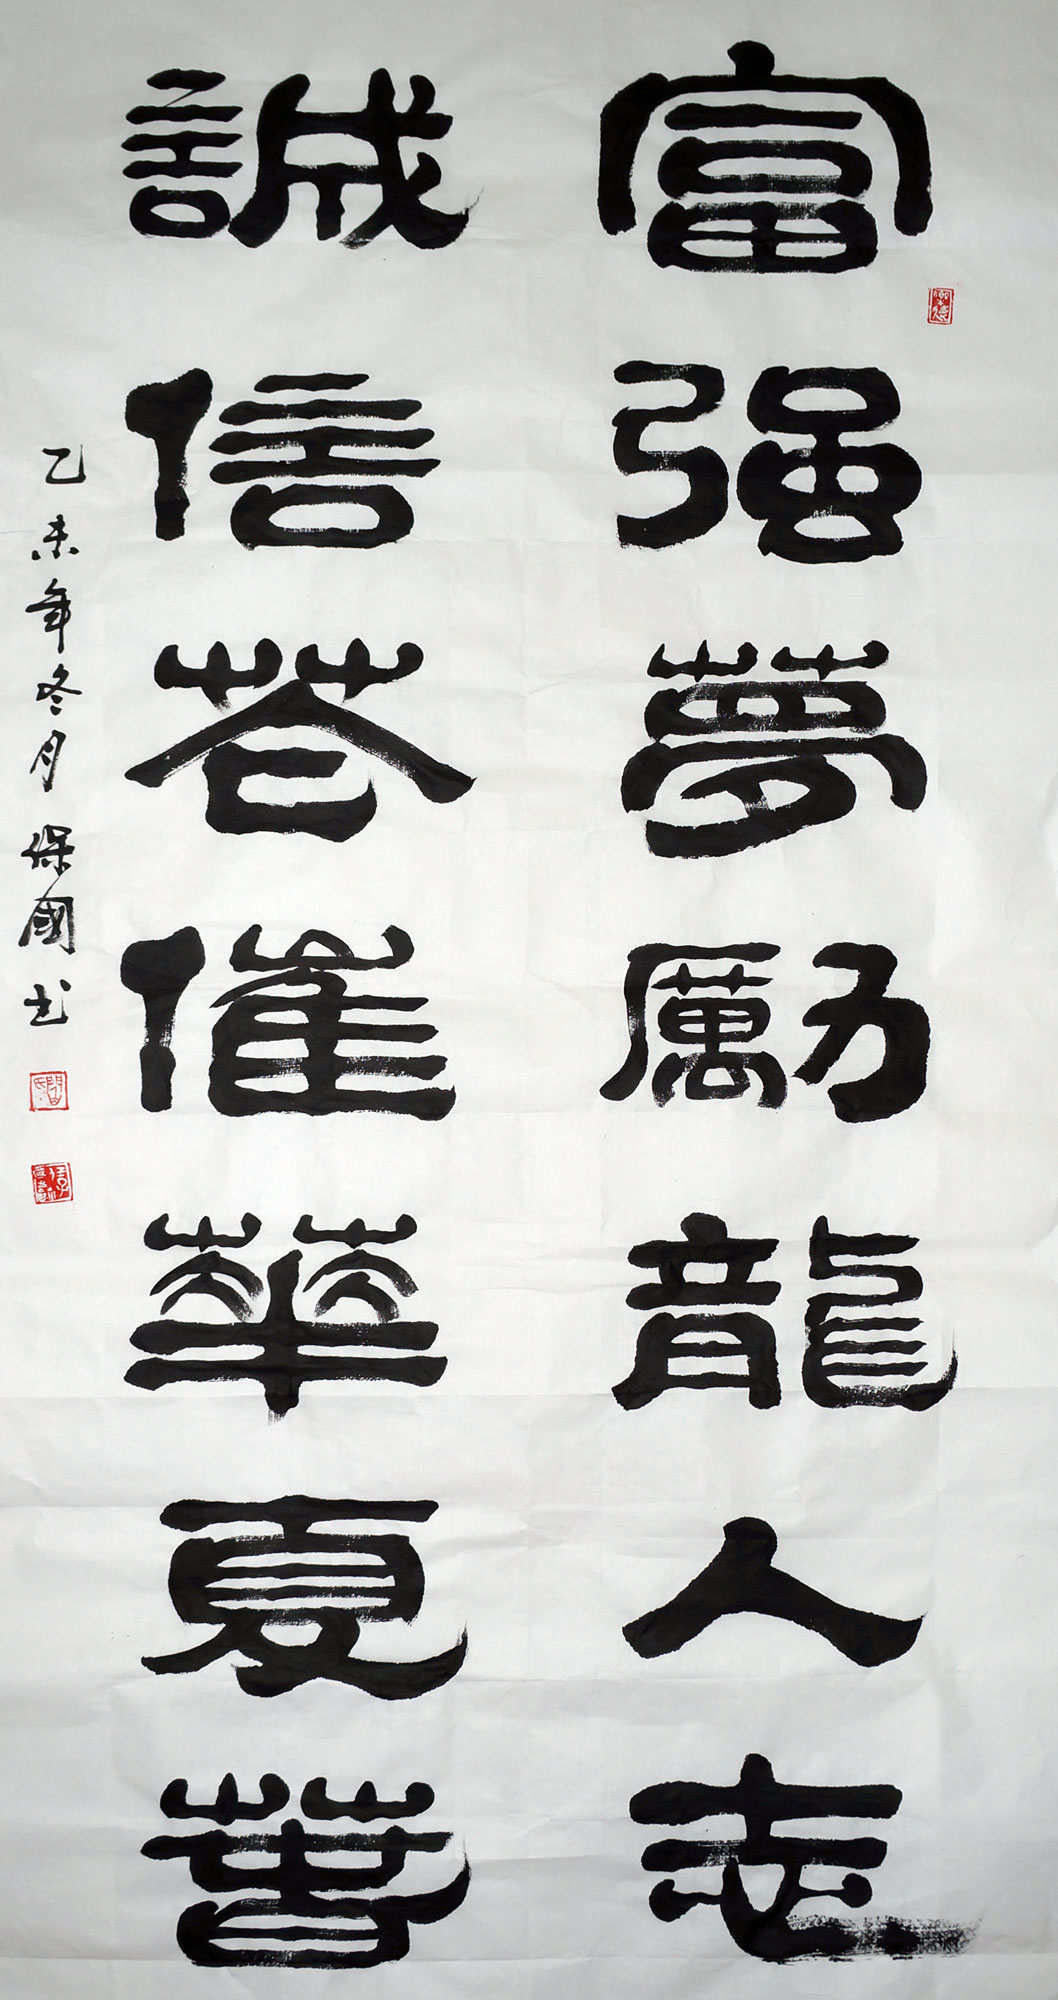 富强夢勵龍人志
誠信花催華夏春
乙未年冬月保國书